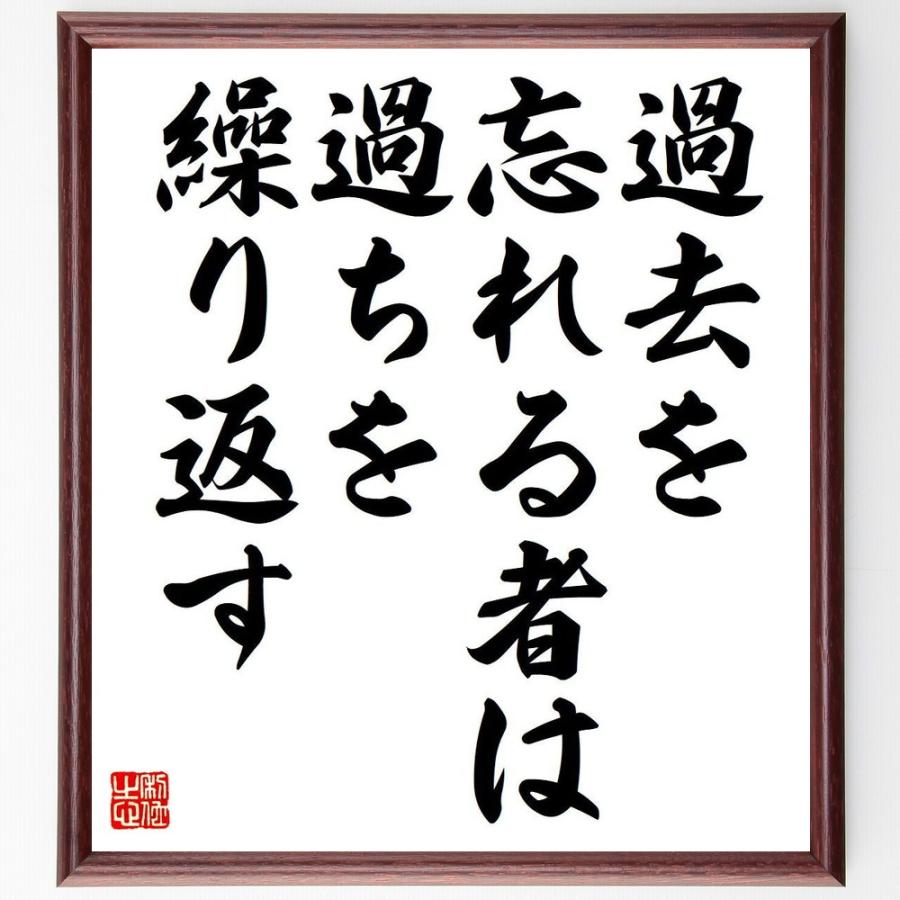 過去を
忘れる者は
過ちを
繰り返す